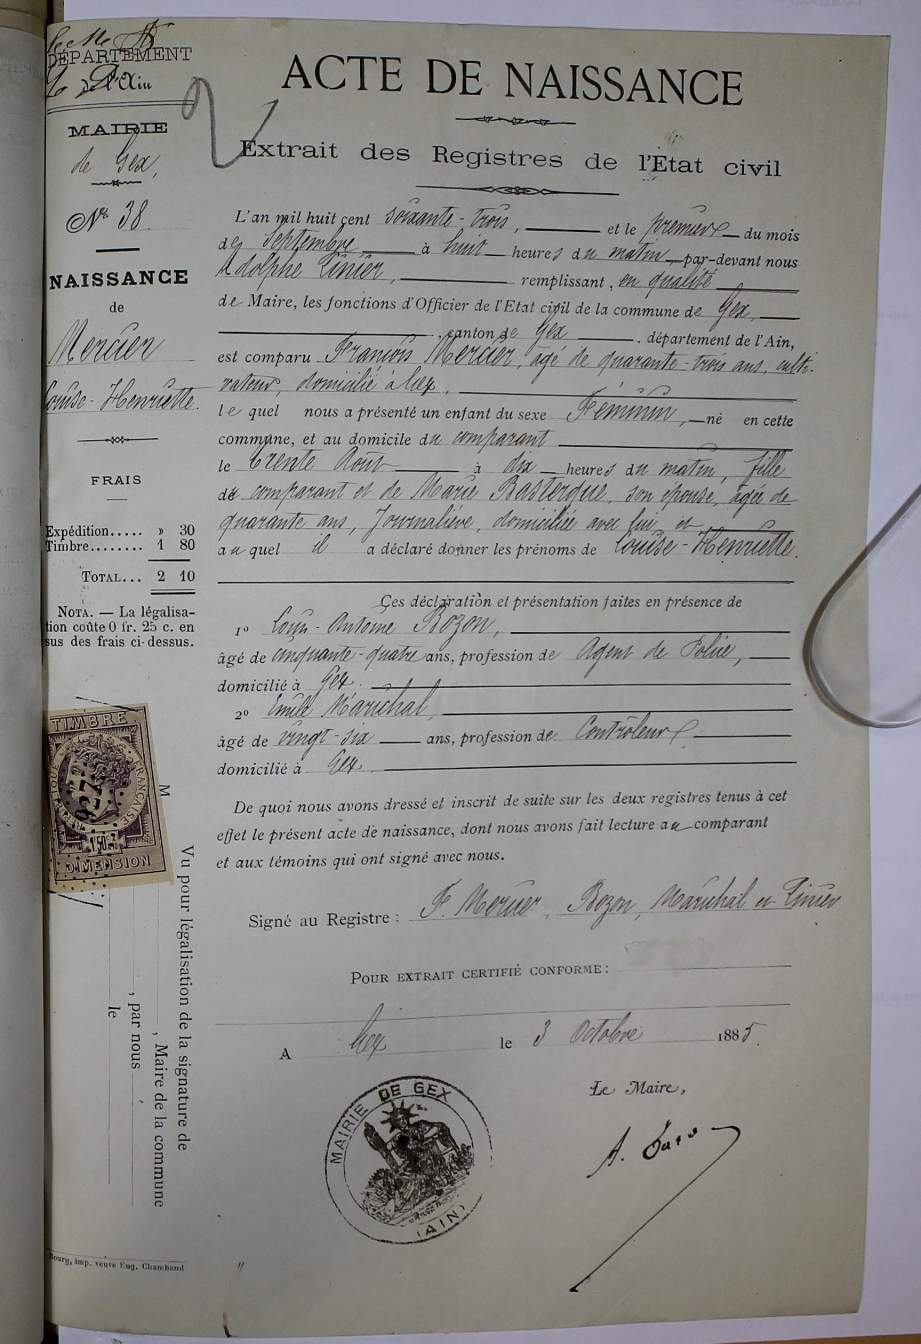 DÉPARTEMENT
de l'Ain
MAIRIE
de Gex,
No 38.
NAISSANCE
de
Mercier
Louise-Henriette.
FRAIS
Expédition..... » 30
Timbre........ 1 80
TOTAL... 2 10
NOTA. — La légalisa-
tion coûte 0 fr. 25 c. en
sus des frais ci-dessus.
TIMBRE
RÉPUBLIQUE FRANÇAISE
1F50
DIMENSION
Vu pour légalisation de la signature de
M
, Maire de la commune
, par nous
le
Bourg, imp. veuve Eug. Chambaud
ACTE DE NAISSANCE
Extrait des Registres de l'Etat civil
L'an mil huit cent soixante-trois, et le premier du mois
de Septembre à huit heures du matin, par-devant nous
Adolphe Pinier, remplissant, en qualité
de Maire, les fonctions d'Officier de l'Etat civil de la commune de Gex,
canton de Gex, département de l'Ain,
est comparu François Mercier, âgé de quarante-trois ans, culti-
vateur, domicilié à Gex,
lequel nous a présenté un enfant du sexe Féminin, né en cette
commune, et au domicile du comparant
le trente Août à dix heures du matin, fille
du comparant et de Marie Basterque, son épouse, agée de
quarante ans, Journalière, domiciliée avec lui et
auquel il a déclaré donner les prénoms de Louise-Henriette.
Ces déclaration et présentation faites en présence de
1o Louis-Antoine Bozon,
âgé de cinquante-quatre ans, profession de Agent de Police,
domicilié à Gex.
2o Emile Maréchal,
âgé de vingt-six ans, profession de Contrôleur
domicilié à Gex.
De quoi nous avons dressé et inscrit de suite sur les deux registres tenus à cet
effet le présent acte de naissance, dont nous avons fait lecture au comparant
et aux témoins qui ont signé avec nous.
Signé au Registre : F. Mercier, Bozon, Maréchal et Pinier
POUR EXTRAIT CERTIFIÉ CONFORME :
A Gex le 3 Octobre 1885.
Le Maire,
MAIRIE DE GEX
(AIN)